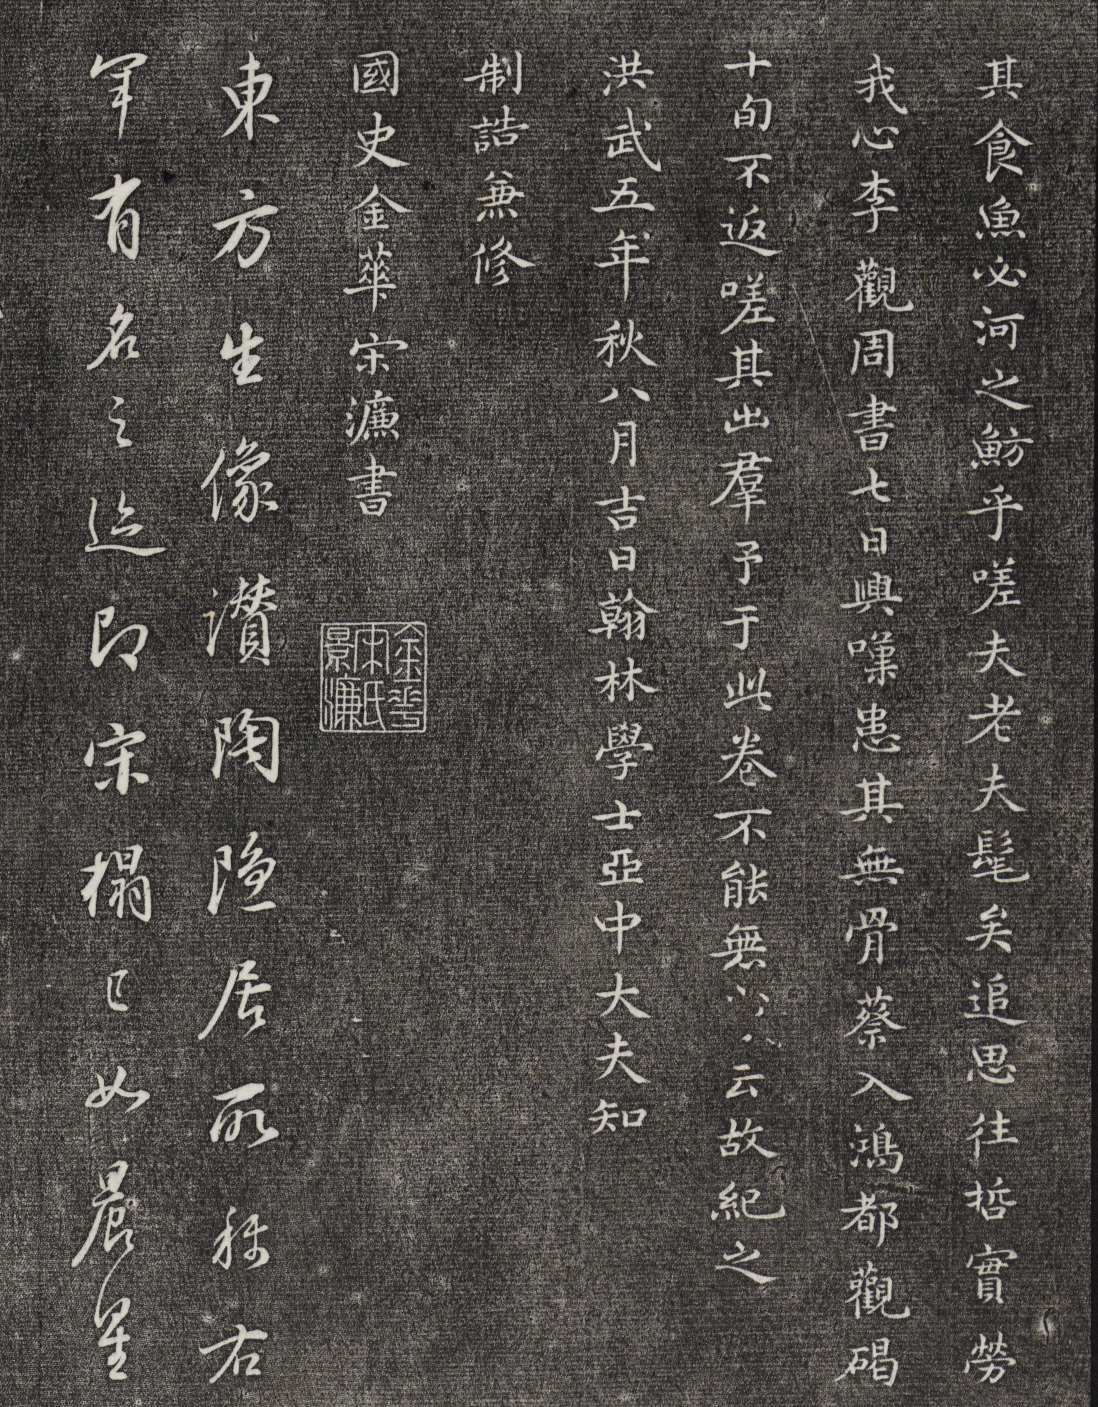 其食魚必河之魴乎嗟夫老夫髦矣追思往哲實勞
我心李觀周書七日輿嘆患其無骨蔡入鴻都觀碣
十旬不返嗟其出羣予于此卷不能無 云故紀之
洪武五年秋八月吉日翰林學士亞中大夫知
制誥兼修
國史金華宋濂書
金華宋氏景濂
東方生像讚陶隐居所称右
軍有名之迹即宋榻已如晨星